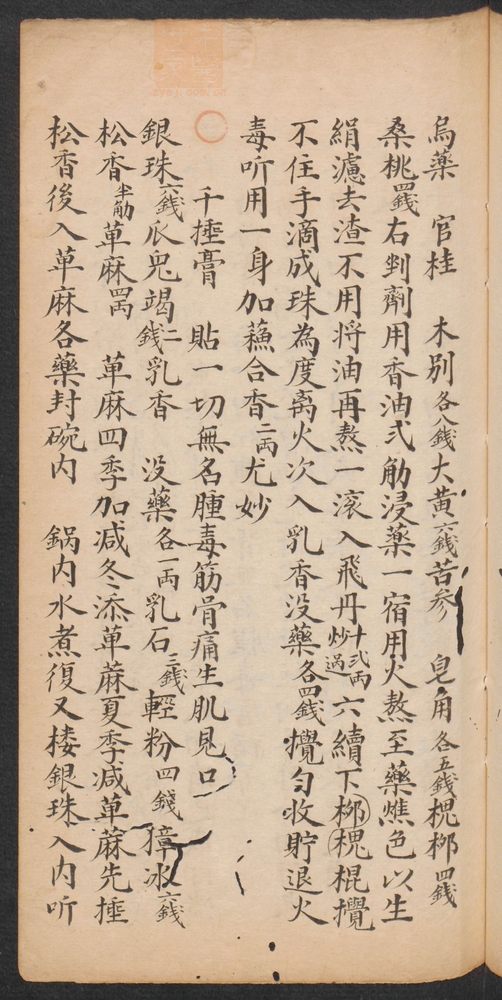 烏藥 官桂 木別各八錢大黃六錢苦参 皂角各五錢槐柳四錢
桑桃四錢右剉劑用香油弍觔浸藥一宿用火熬至藥燋色以生
絹濾去渣不用将油再熬一滾入飛丹十弍両炒過六續下柳槐棍攪
不住手滴成珠為度离火次入乳香没藥各四錢攪匀收貯退火
毒听用一身加蘓合香二両尤妙
○ 千捶膏 貼一切無名腫毒筋骨痛生肌見口
銀珠六錢爪兒竭二錢乳香 没藥各一両乳石三錢輕粉四錢樟冰六錢
松香半觔萆麻四両 萆麻四季加减冬添萆蔴夏季减萆蔴先捶
松香後入萆麻各藥封碗内 鍋内水煮復又楼銀珠入内听